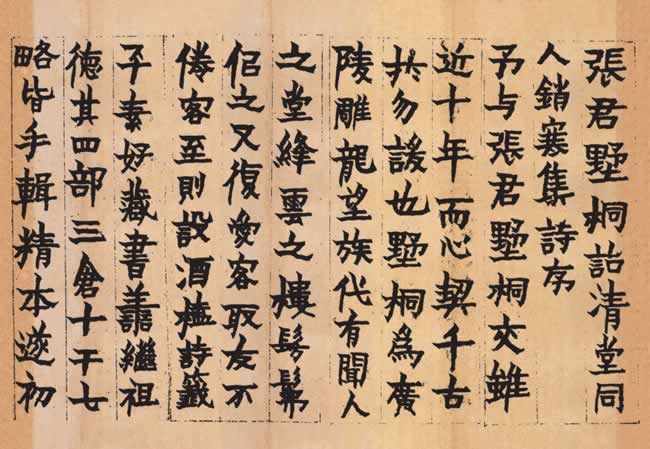 張君墅桐詒清堂同
人銷寒集詩序
予与張君墅桐交雖
近十年而心契千古
共勿諼也墅桐爲廣
陵雕龍望族代有聞人
之堂絳雲之樓髣髴
侣之又復愛客取友不
倦客至則設酒榼詩籤
子素好藏書善繼祖
徳其四部三倉十干七
略皆手輯精本遂初